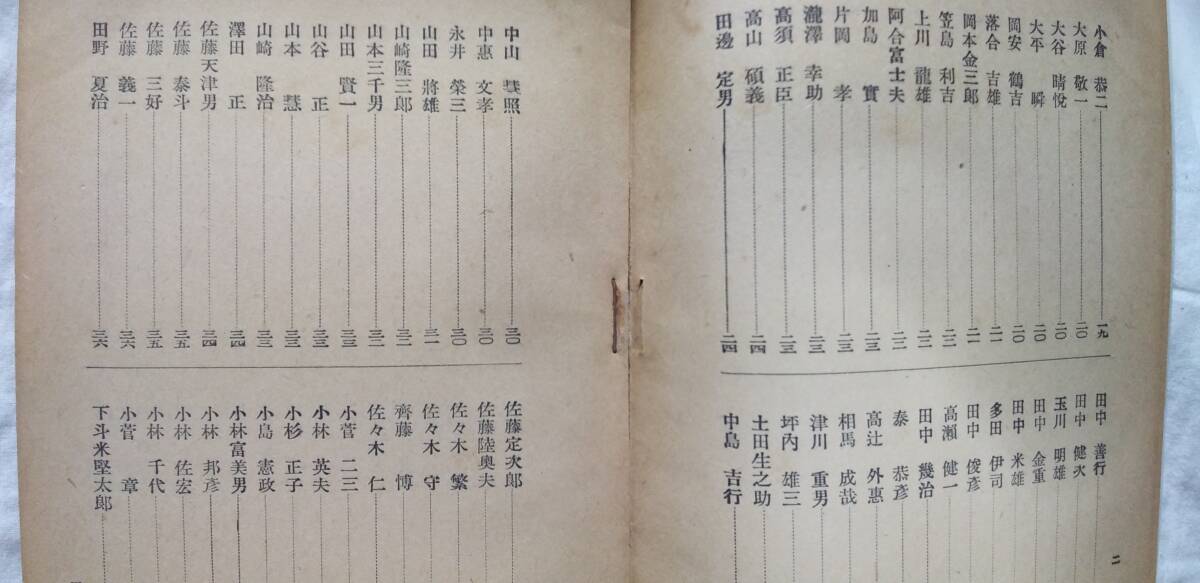 小倉 恭二 一九
大原 敬一 二〇
大谷 晴悅 二〇
大平 瞬 二〇
岡安 鶴吉 二〇
落合 吉雄 二一
岡本金三郎 二一
笠島 利吉
上川 龍雄 二三
阿合富士夫
加島 實 二三
片岡 孝 二三
瀧澤 幸助 二三
高須 正臣 二三
高山 碩義 二四
田邊 定男 二四
田中 善行
田中 健次
玉川 明雄
田中 金重
田中 米雄
多田 伊司
田中 俊彥
高瀬 健一
田中 幾治
泰 恭彥
高辻 外惠
相馬 成哉
津川 重男
坪內 雄三
土田生之助
中島 吉行
二
中山 慧照 三〇
中惠 文孝 三〇
永井 榮三 三〇
山田 將雄 三一
山崎隆三郎
山本三千男 三二
山田 賢一 三三
山谷 正 三三
山本 慧 三三
山崎 隆治 三三
澤田 正 三四
佐藤天津男 三四
佐藤 泰斗 三五
佐藤 三好 三五
佐藤 義一 三六
田野 夏治 三六
佐藤定次郎
佐藤陸奧夫
佐々木 繁
佐々木 守
齊藤 博
佐々木 仁
小菅 二三
小林 英夫
小杉 正子
小島 憲政
小林富美男
小林 邦彥
小林 佐宏
小林 千代
小菅 章
下斗米堅太郎